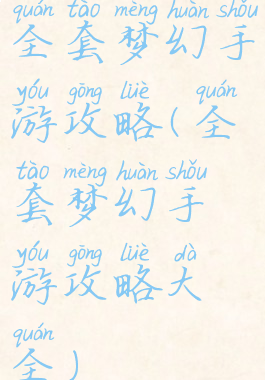 quán tào mèng huàn shǒu
全套梦幻手
yóu gōng lüè quán
游攻略(全
tào mèng huàn shǒu
套梦幻手
yóu gōng lüè dà
游攻略大
quán
全)